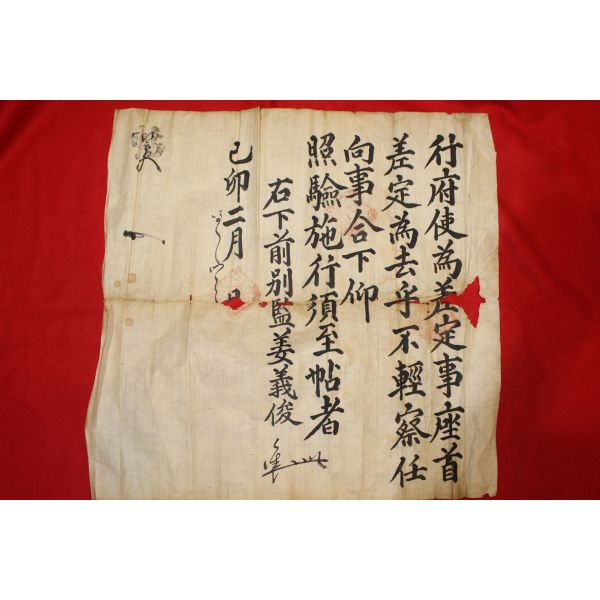 行府使為差定事座首
差定為去乎不輕察任
向事合下仰
照驗施行須至帖者
右下前別監姜義俊
己卯二月 日